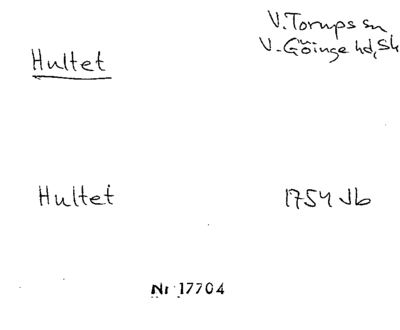 V. Torups sn
V. Göinge hd, Sk
Hultet
Hultet 1754 Jb
Nr 17704